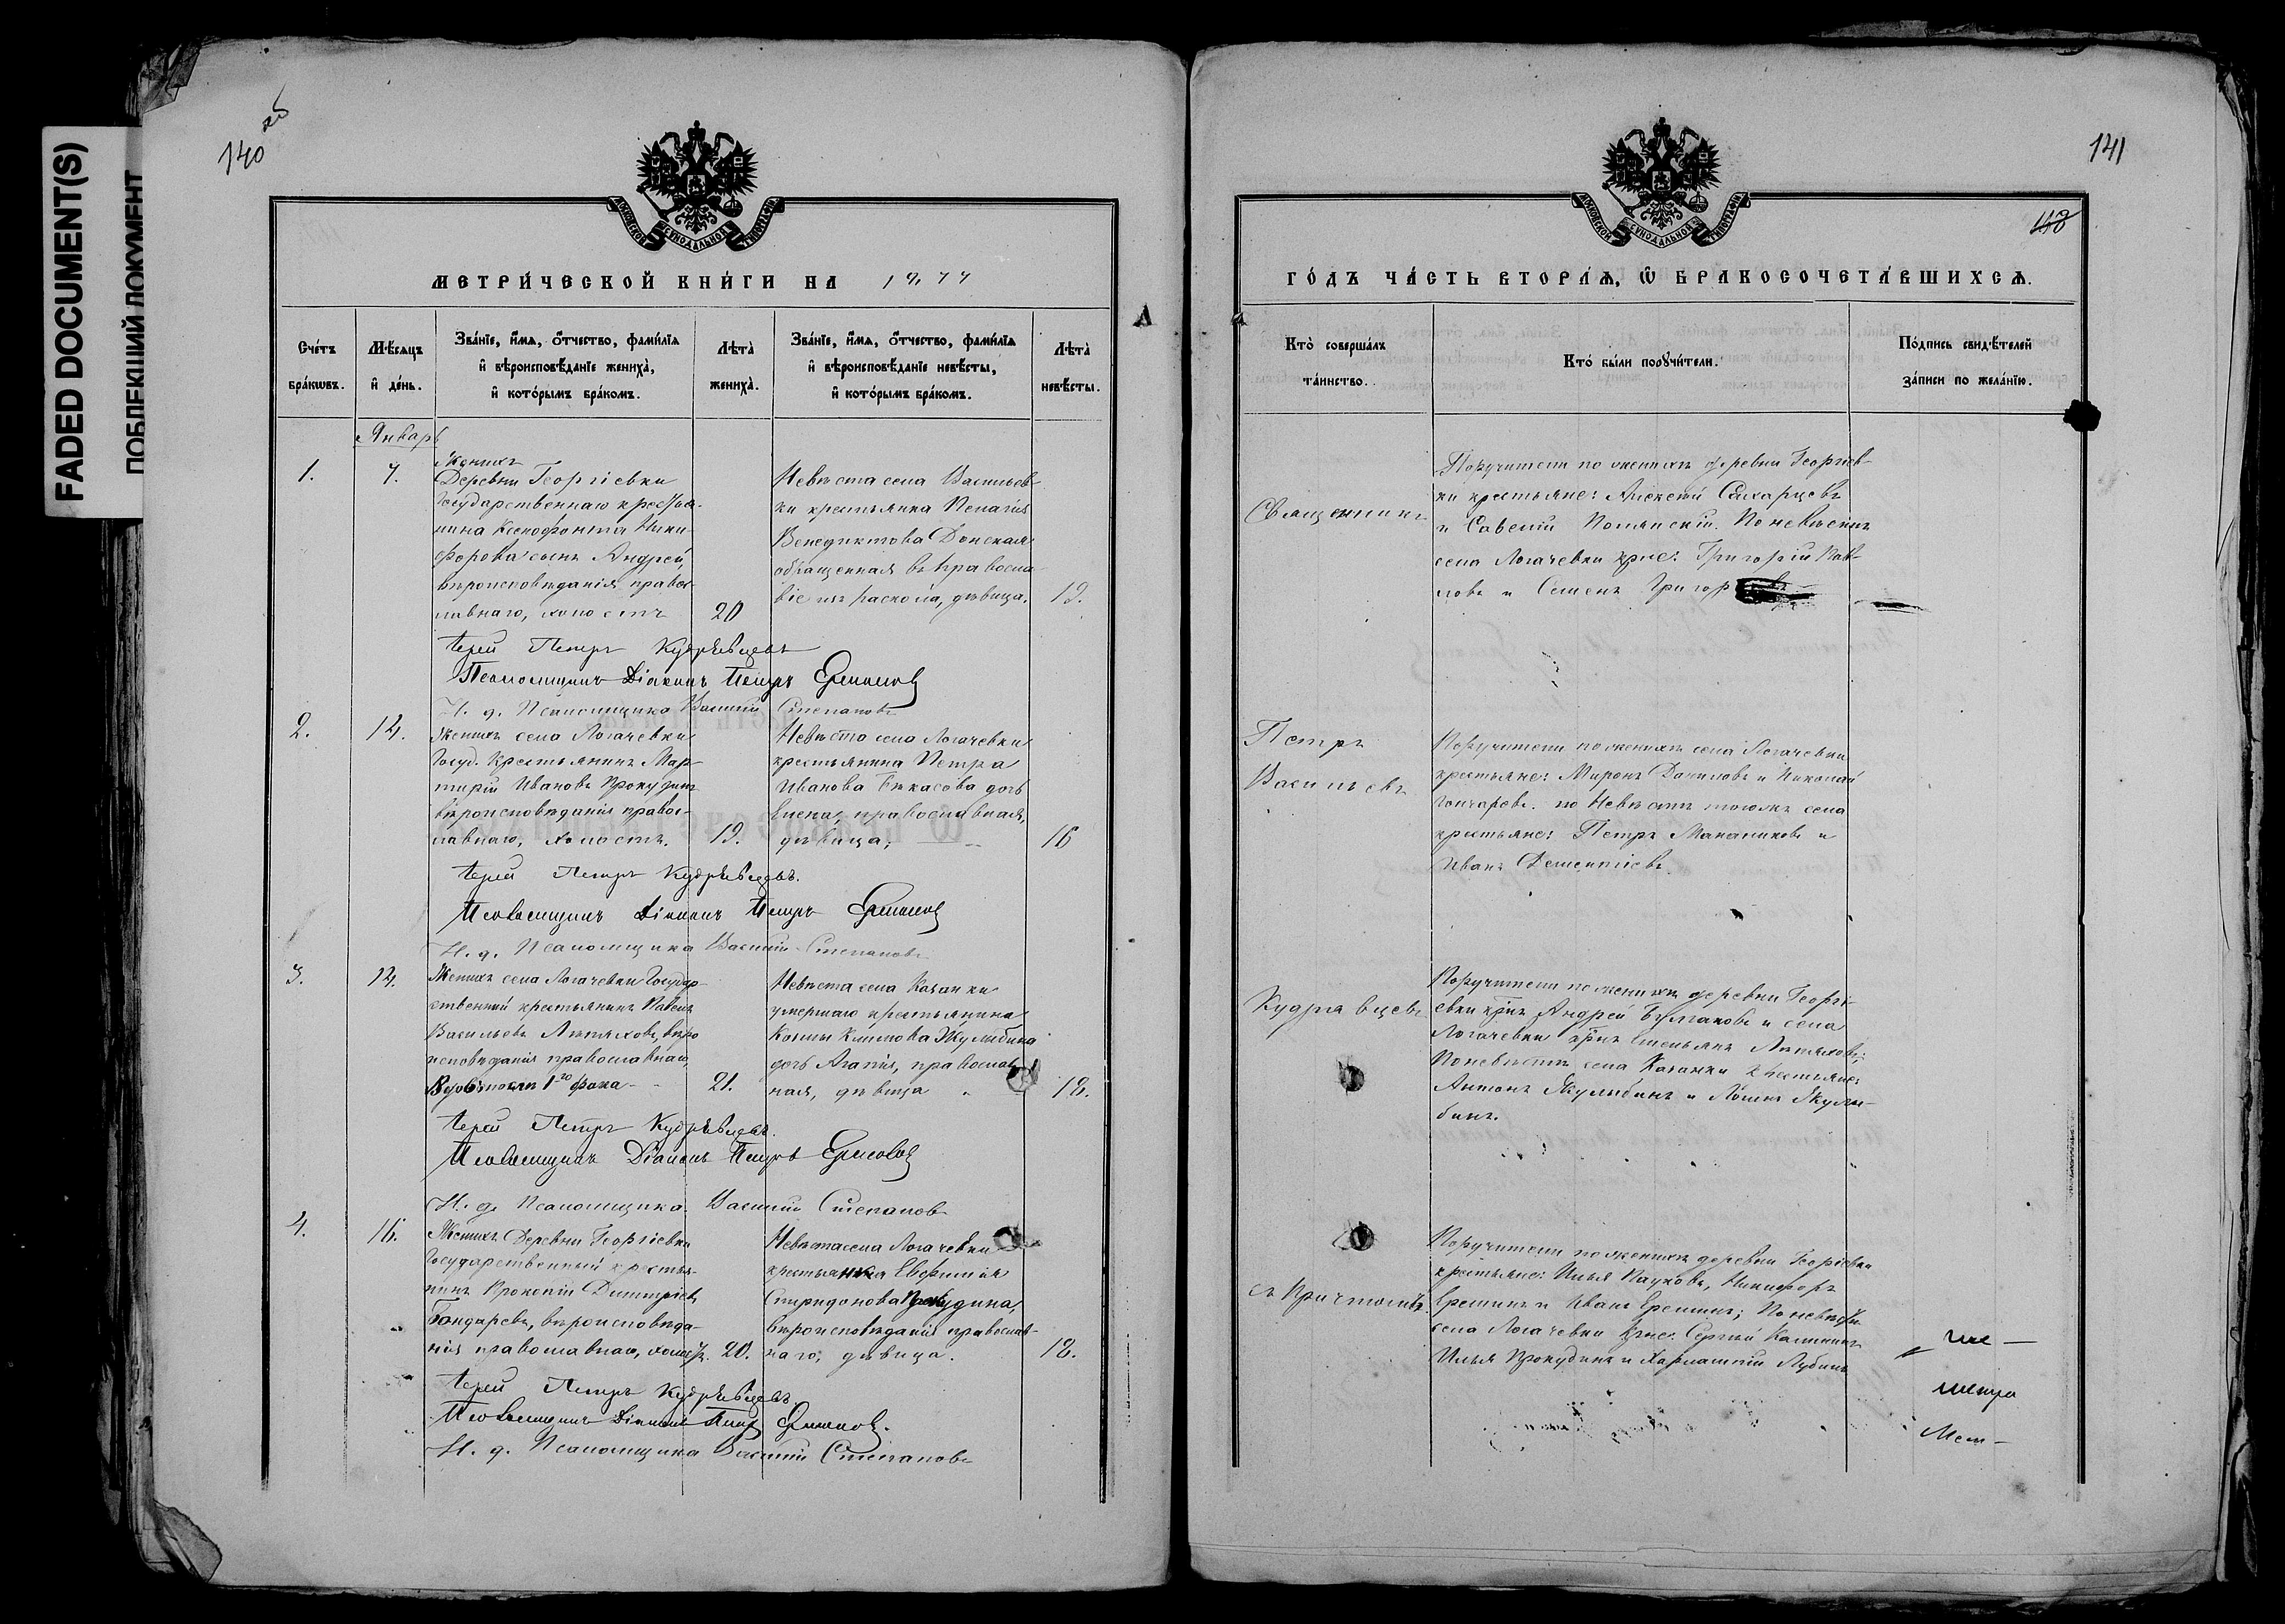 FADED DOCUMENT(S)
ПОБЛЕКШИЙ ДОКУМЕНТ
140
МОСКОВСКОЙ СѴНОДАЛЬНОЙ ТИПОГРАФІИ
МЕТРИ́ЧЕСКОЙ КНИ́ГИ НА 1877
Сче́тъ бра́кѡвъ.
Мѣ́сяцъ и҆ де́нь.
Зва́нїе, и҆́мѧ, ѻ҆́тчество, фами́лїѧ и҆ вѣроисповѣ́данїе жениха̀, и҆ кото́рымъ бра́комъ.
Лѣта̀ жениха̀.
Зва́нїе, и҆́мѧ, ѻ҆́тчество, фами́лїѧ и҆ вѣроисповѣ́данїе невѣ́сты, и҆ кото́рымъ бра́комъ.
Лѣта̀ невѣ́сты.
Январь
1.
7.
Женихъ
Деревни Георгіевки
Государственнаго крестья-
нина Ксенофонта Ники-
форова сынъ Андрей,
вѣроисповѣданія правос-
лавнаго, холостъ
20
Невѣста села Васильев-
ки крестьянка Пелагія
Венедиктова Донская
обращенная въ правосла-
віе изъ раскола, дѣвица.
19.
Іерей Петръ Кудрявцевъ
Псаломщикъ Діаконъ Петръ
И. д. Псаломщика Василій Степановъ
2.
14.
Женихъ села Логачевки
Госуд. Крестьянинъ Мар-
тирій Ивановъ Прокудинъ
вѣроисповѣданія правос-
лавнаго, холостъ.
19.
Невѣста села Логачевки
крестьянина Петра
Иванова Бѣкасова дочь
Елена, православная,
дѣвица,
16
Іерей Петръ Кудрявцевъ.
Псаломщикъ Діаконъ Петръ
И. д. Псаломщика Василій Степановъ
3.
14.
Женихъ села Логачевки Государ-
ственный крестьянинъ Павелъ
Васильевъ Лѣтяховъ, вѣро
исповѣданія православнаго,
21.
Невѣста села Казанки
умершаго крестьянина
Козмы Климова Жкулибина
дочь Агапія, православ
ная, дѣвица
18.
Іерей Петръ Кудрявцевъ.
Псаломщикъ Діаконъ Петръ
И. д. Псаломщика Василій Степановъ
4.
16.
Женихъ Деревни Георгіевки
Государственный крестья-
нинъ Прокопій Димитріевъ
Бондаревъ, вѣроисповѣда-
нія православнаго, холостъ.
20.
Невѣста села Логачевки
крестьянка Евфимія
Спиридонова Прокудина,
вѣроисповѣданія православ-
наго, дѣвица.
18.
Іерей Петръ Кудрявцевъ.
Псаломщикъ Діаконъ Петръ
И. д. Псаломщика Василій Степановъ
141
МОСКОВСКОЙ СѴНОДАЛЬНОЙ ТИПОГРАФІИ
ГО́ДЪ ЧА́СТЬ ВТОРА́Ѧ, Ѡ҆ БРАКОСОЧЕТА́ВШИХСѦ.
Кто̀ соверша́лъ та́инство.
Кто́ бы́ли порꙋчи́тели.
По́дпись свидѣ́телей за́писи по жела́нїю.
Священникъ
Петръ
Васильевъ
Кудрявцевъ
съ Причтомъ.
Поручители по женихѣ деревни Георгіев-
ки крестьяне: Алексѣй Сахарцевъ
и Савелій Полянскій. По невѣстѣ
села Логачевки крие: Григорій Пав-
ловъ и Семенъ
Поручители по женихѣ села Логачевки
крестьяне: Миронъ Даниловъ и Николай
Гончаревъ. по Невѣстѣ тогожъ села
крестьяне: Петръ Манаников и
Иванъ Дементіевъ.
Поручители по женихѣ деревни Георгі-
евки Андрей Булгаковъ и села
Логачевки Емельянъ Лѣтяховъ;
По невѣстѣ села Казанки крестьяне:
Антонъ Жкулибинъ и Жкули-
бинъ.
Поручители по женихѣ деревни Георгіевки
крестьяне: Илья Пауковъ, Никифоръ
Еремин и Иванъ Ереминъ; По невѣстѣ
села Логачевки Крие: Сергѣй Калининъ
Илья Прокудинъ и Харлампій Лубинъ